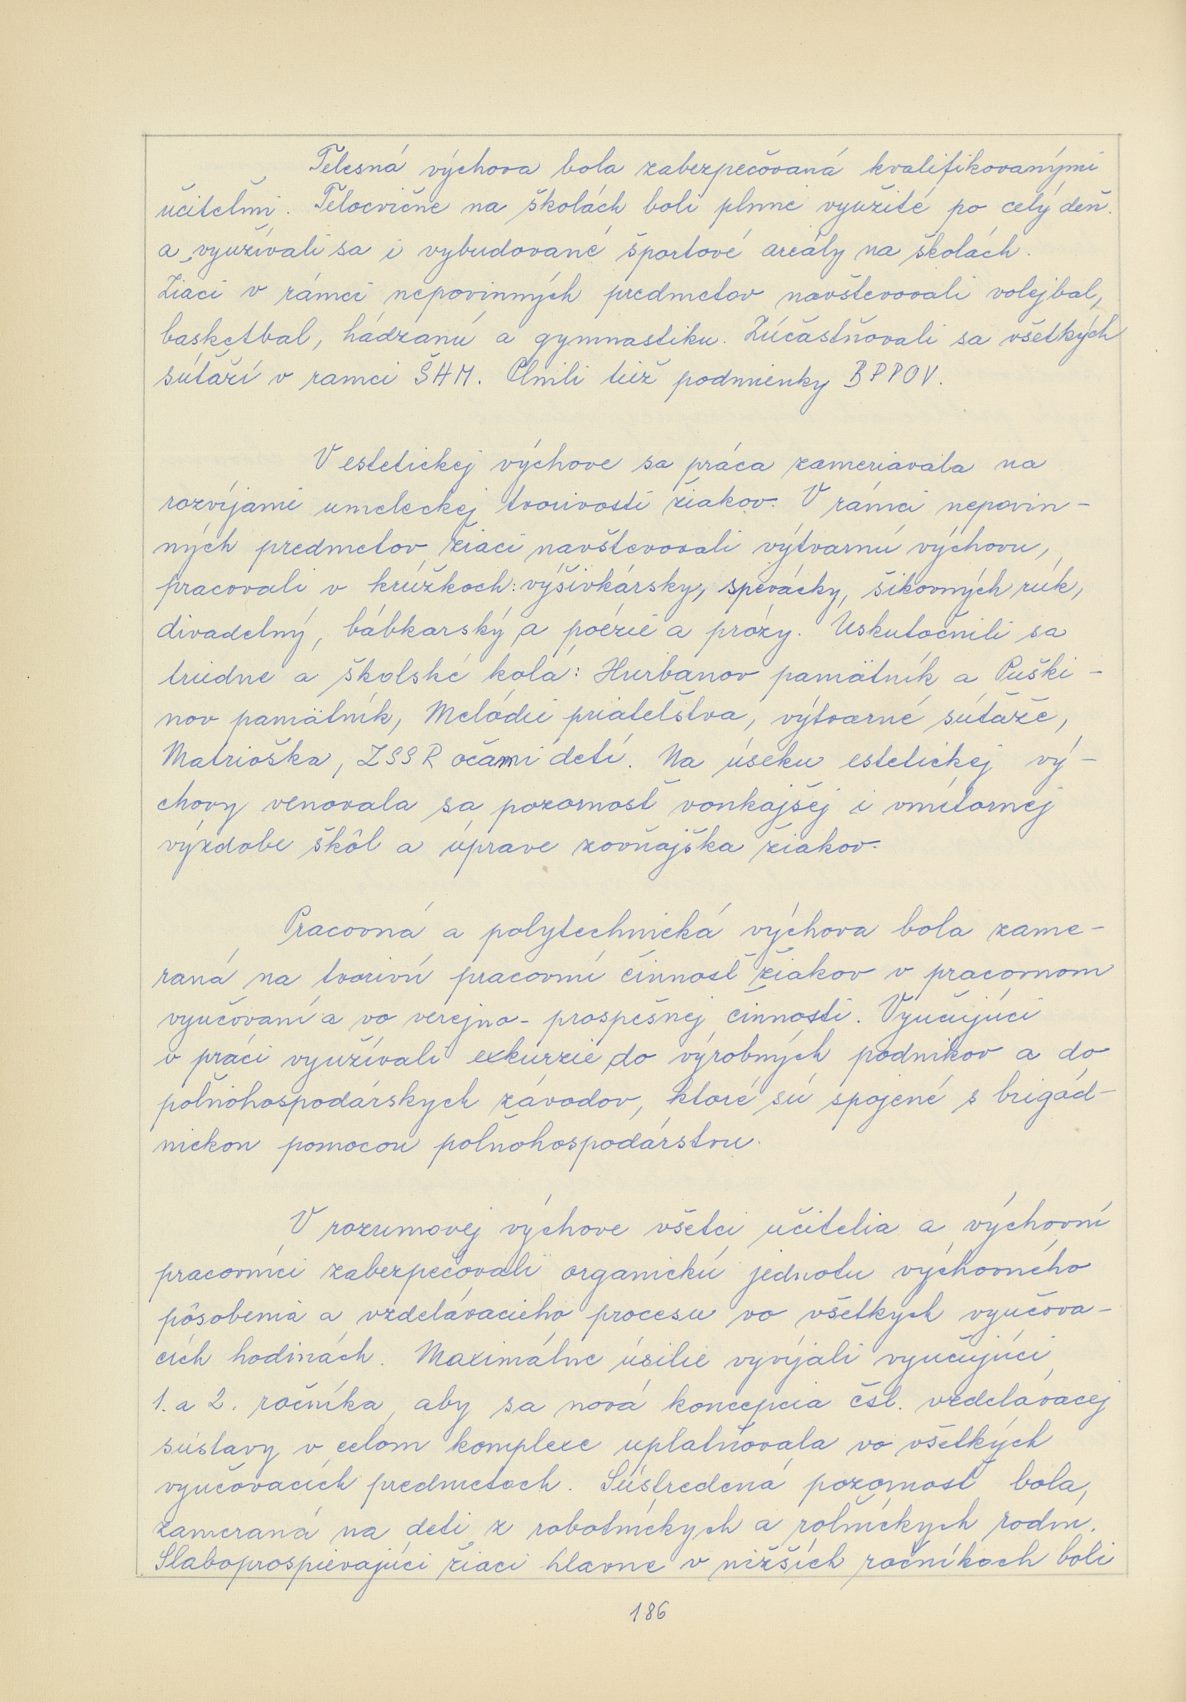 Telesná výchova bola zabezpečovaná kvalifikovanými
učiteľmi. Telocvične na školách boli plnne využité po celý deň.
a využívali sa i vybudované športové areály na školách.
Žiaci v rámci nepovinných predmetov navštevovali volejbal,
basketbal, hádzanú a gymnastiku. Zúčastňovali sa všetkých
súťaží v ramci ŠHM. Plnili tiež podmienky BPPOV.
V estetickej výchove sa práca zameriavala na
rozvíjanie umeleckej tvorivosti žiakov. V rámci nepovin-
ných predmetov žiaci navštevovali výtvarnú výchovu,
pracovali v krúžkoch: výšivkársky, spevácky, šikovných rúk,
divadelný, bábkarský a poézie a prózy. Uskutočnili sa
triedne a školské kolá: Hurbanov pamätník a Puški-
nov pamätník, Melódie priateľstva, výtvarné súťaže,
Matrioška, ZSSR očami detí. Na úseku estetickej vý-
chovy venovala sa pozornosť vonkajšej i vnútornej
výzdobe škôl a úprave zovňajška žiakov.
Pracovná a polytechnická výchova bola zame-
raná na tvorivú pracovnú činnosť žiakov v pracovnom
vyučovaní a vo verejno-prospešnej činnosti. Vyučujúci
v práci využívali exkurzie do výrobných podnikov a do
poľnohospodárskych závodov, ktoré sú spojené s brigád-
nickou pomocou poľnohospodárstvu.
V rozumovej výchove všetci učitelia a výchovní
pracovníci zabezpečovali organickú jednotu výchovného
pôsobenia a vzdelávacieho procesu vo všetkých vyučova-
cích hodinách. Maximálne úsilie vyvýjali vyučujúci
1. a 2. ročníka, aby sa nová koncepcia čsl. vzdelávacej
sústavy v celom komplexe uplatňovala vo všetkých
vyučovacích predmetoch. Sústredená pozornosť bola,
zameraná na deti z robotníckych a roľníckych rodín.
Slaboprospievajúci žiaci hlavne v nižších ročníkoch boli
186